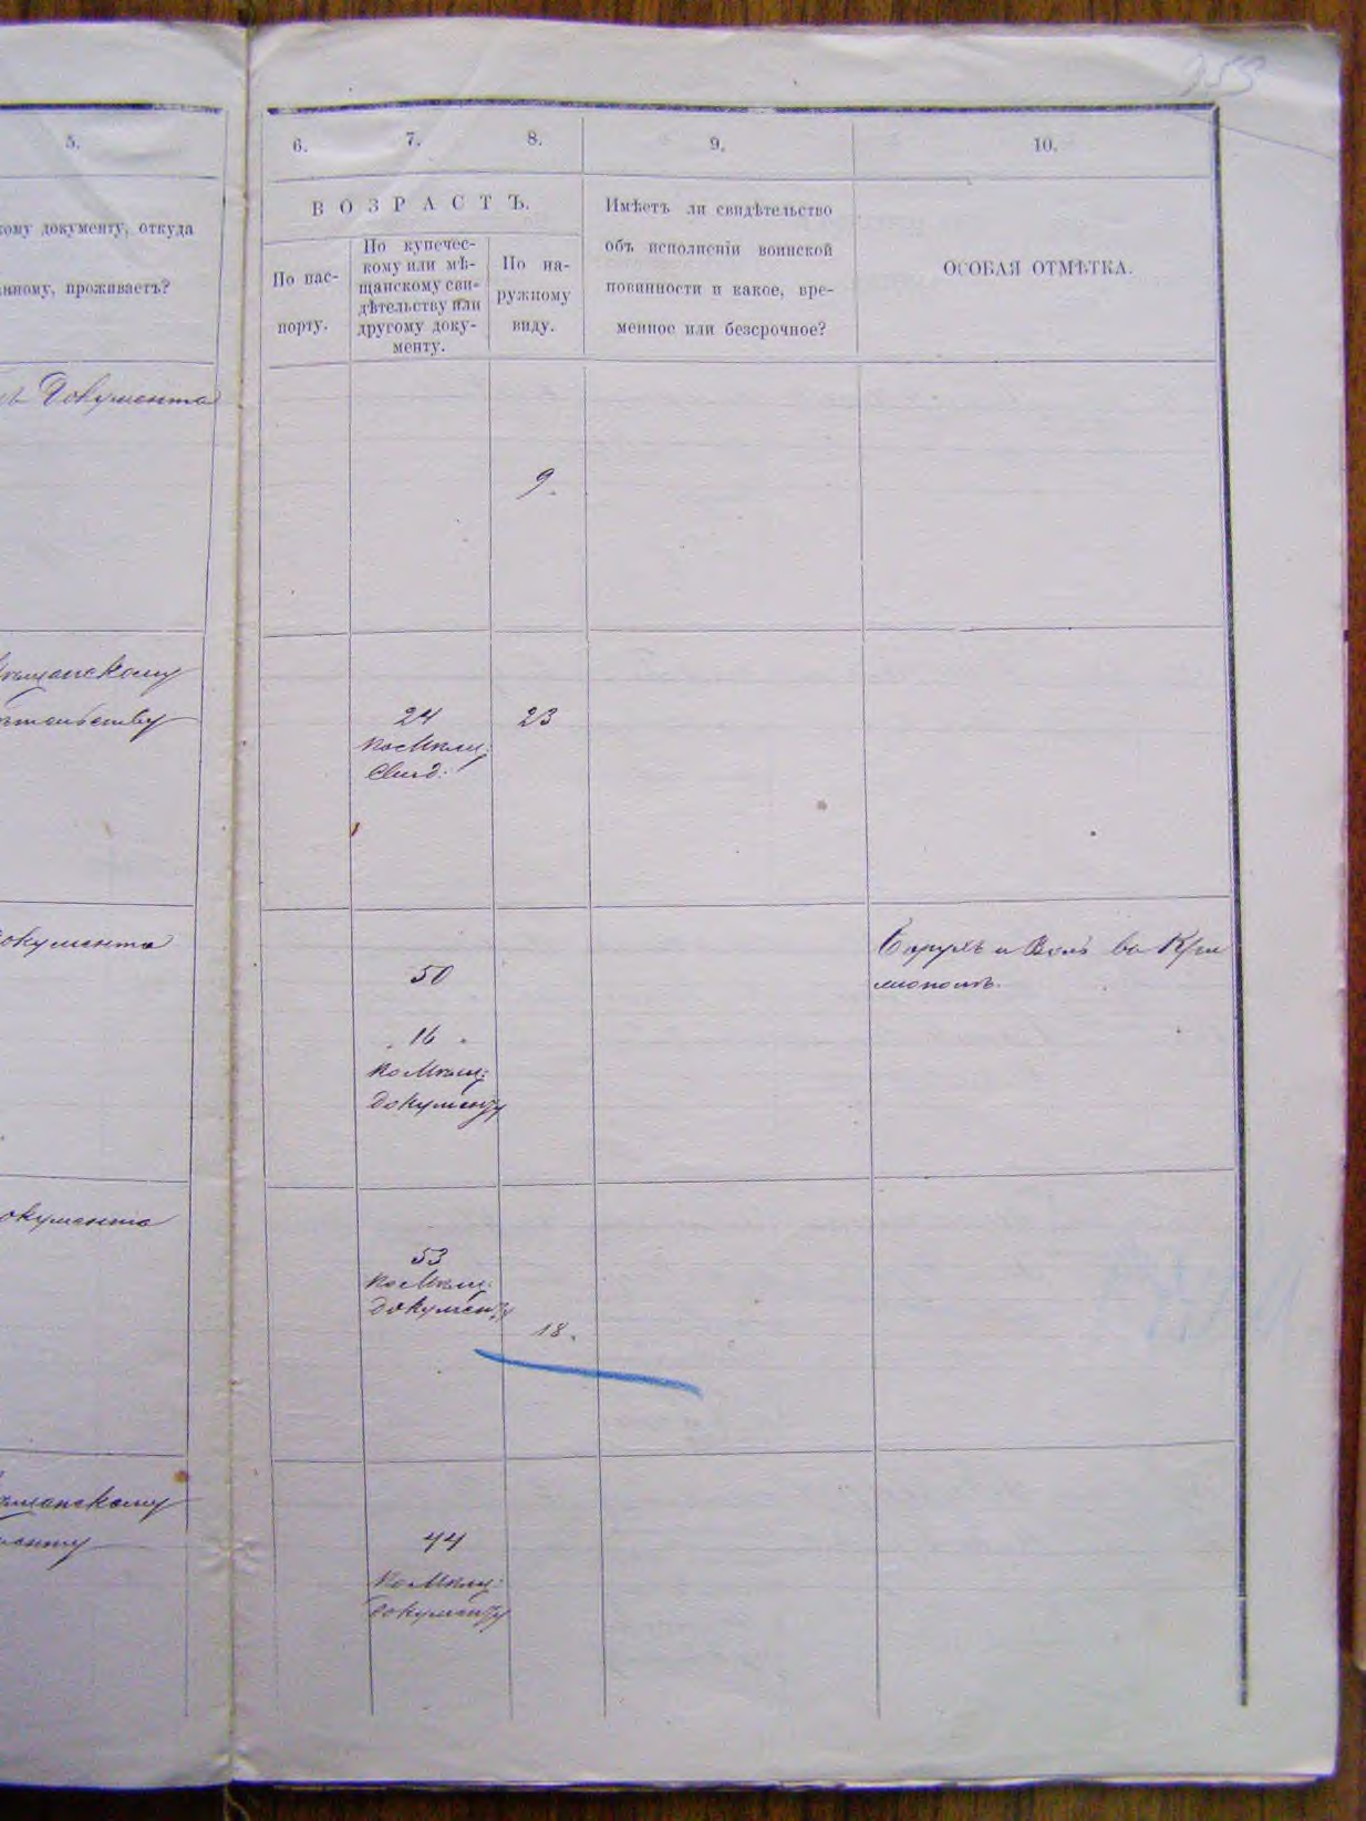 953
5.
6.
7.
8.
9.
10.
кому документу, откуда
нному, проживаетъ?
ВОЗРАСТЪ.
По пас-
порту.
По купечес-
кому или мѣ-
щанскому сви-
дѣтельству или
другому доку-
менту.
По на-
ружному
виду.
Имѣетъ ли свидѣтельство
объ исполненіи воинской
повинности и какое, вре-
менное или безсрочное?
ОСОБАЯ ОТМѢТКА.
Документа
9.
24
23
по Мѣщ:
Свид:
окумента
50
16
по Мѣщ:
документу
Борухъ и Волъ въ
окумента
53
по Мѣщ:
документу
18.
44
по Мѣщ:
документу